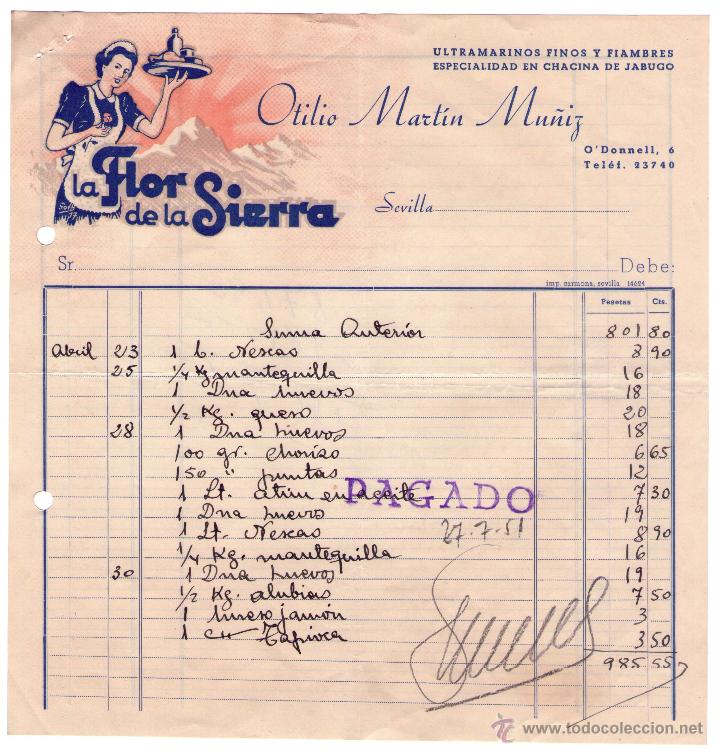 ULTRAMARINOS FINOS Y FIAMBRES
ESPECIALIDAD EN CHACINA DE JABUGO
Otilio Martín Muñiz
O'Donnell, 6
Teléf. 23740
la Flor
de la Sierra
Sevilla
Sr. Debe:
imp. carmona, sevilla 14624
Pesetas Cts.
Suma Anterior 801 80
Abril 23 1 b. Nescao 8 90
25 1/4 Kg mantequilla 16
1 Dna huevos 18
1/2 Kg. queso 20
28 1 Dna huevos 18
100 gr. chorizo 6 65
150 " puntas 12
1 Lt. atún en aceite 7 30
PAGADO
1 Dna huevos 19
27-7-51
1 Lt. Nescao 8 90
1/4 Kg. mantequilla 16
30 1 Dna huevos 19
1/2 Kg. alubias 7 50
1 hueso jamón 3
1 Tapioca 3 50
985 55
www.todocoleccion.net